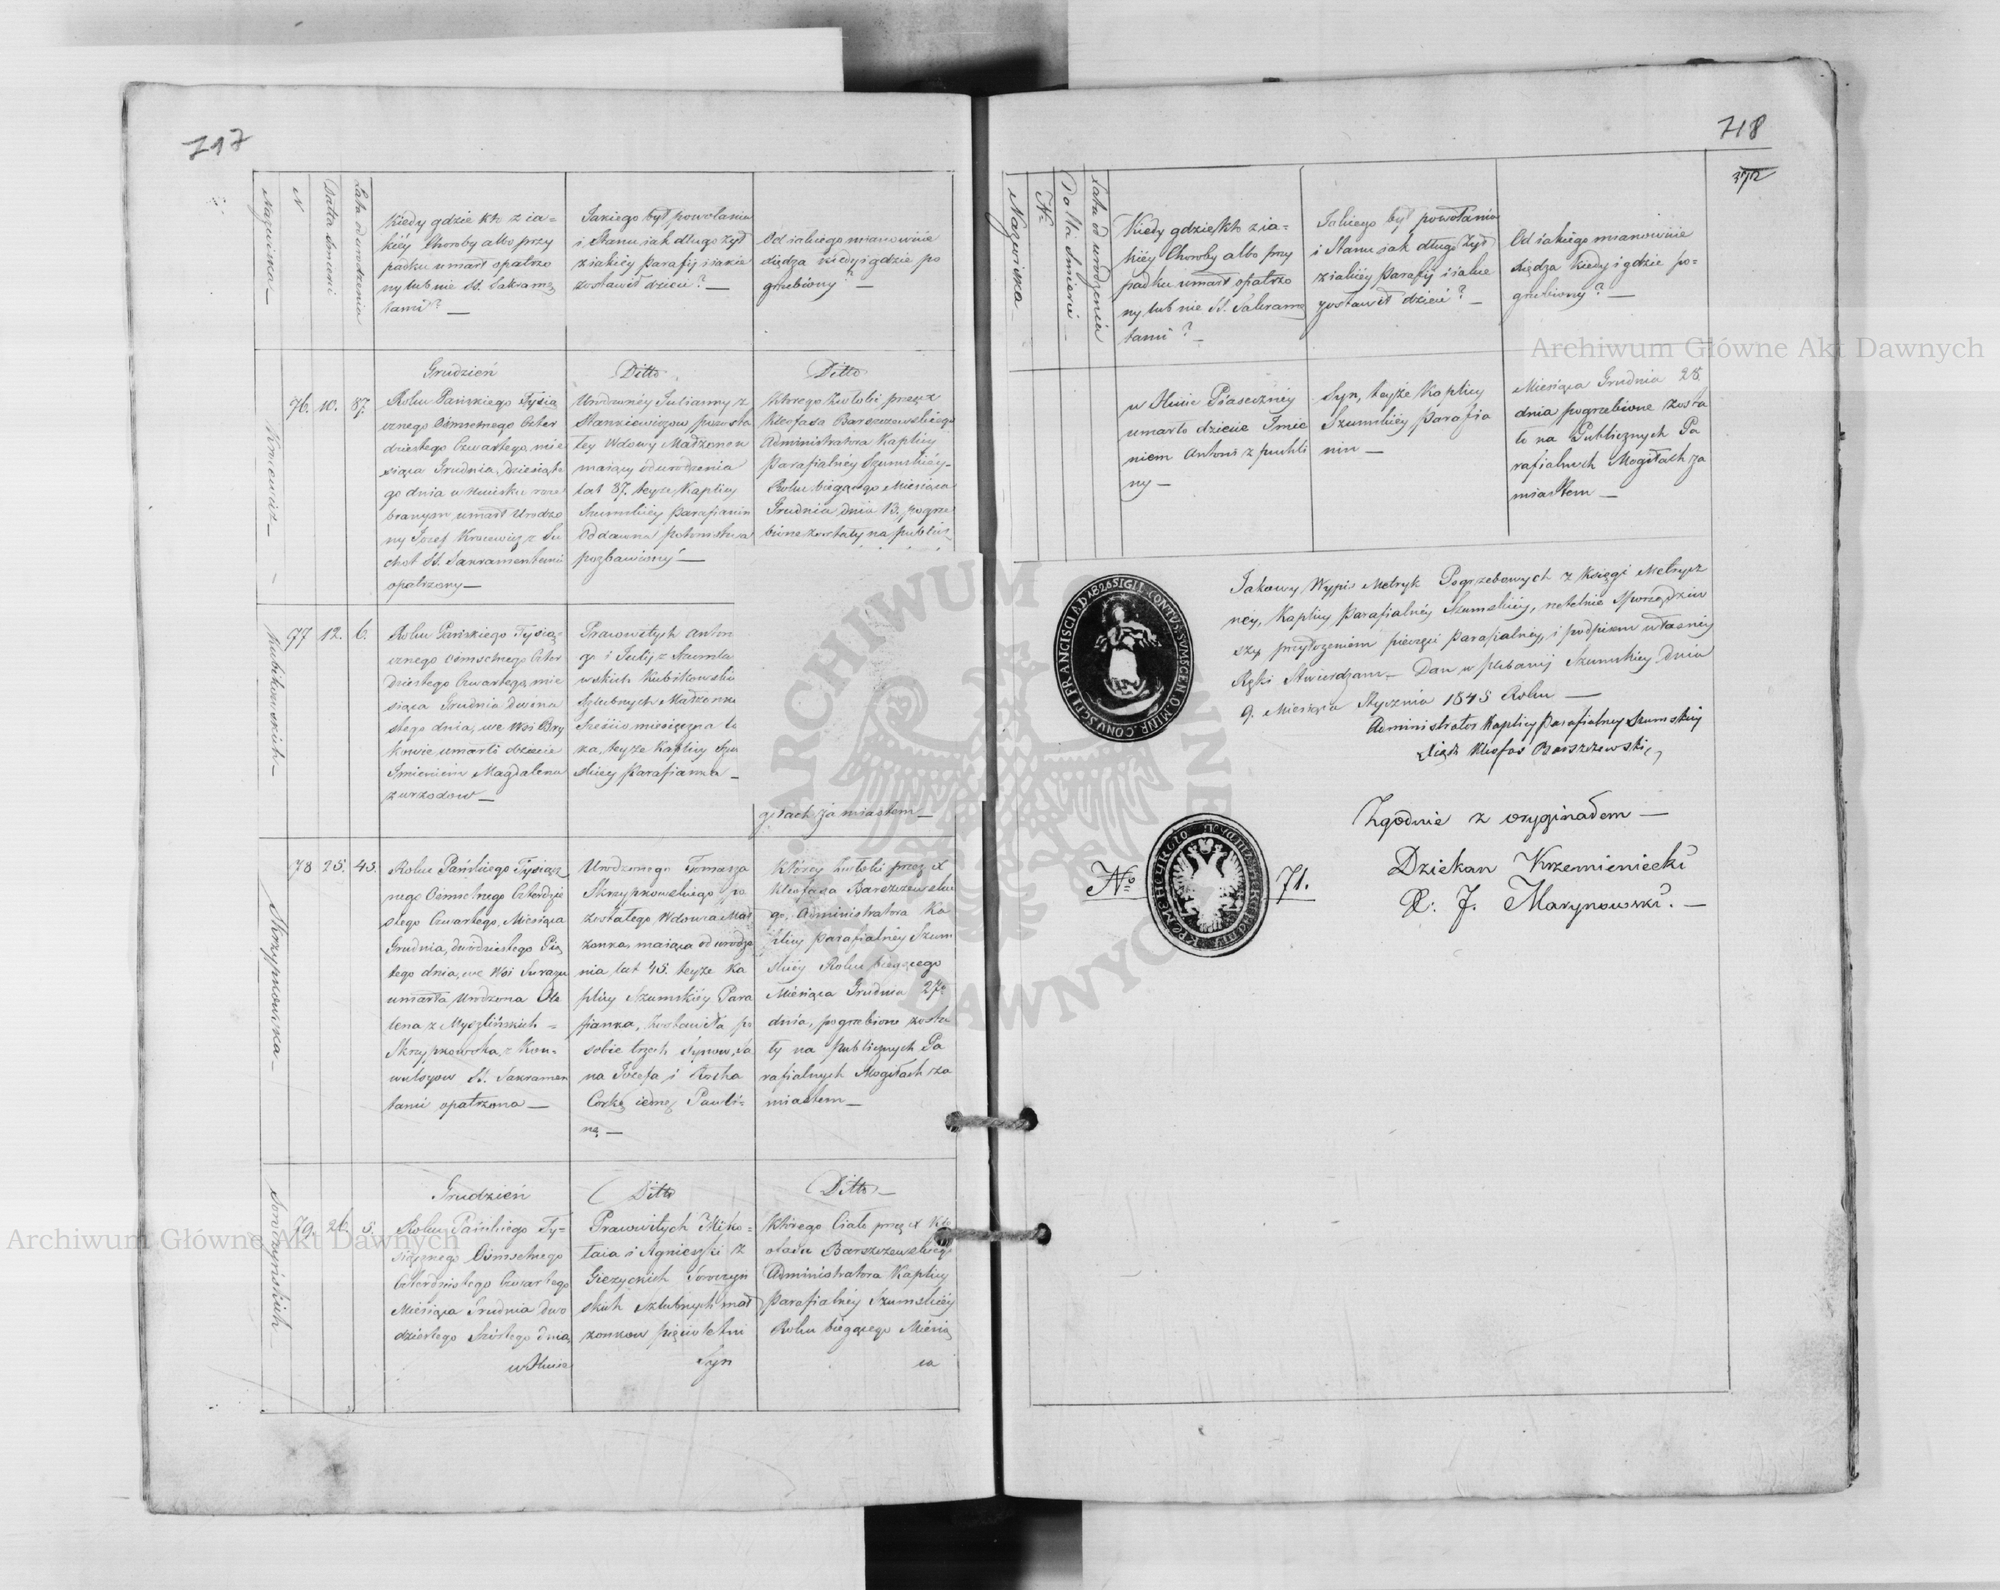 717
Nazwiska
N
Datta śmierci
Lata od urodzenia
Kiedy gdzie kto z ia=
kiéy Choroby albo przy
padku umarł opatrzo
ny lub nie SS. Sakramę
tami? —
Jakiego był powołania
i Stanu, iak długo żył
z iakiéy Parafij i iakie
zostawił dzieci? —
Od iakiego mianowicie
Xiędza kiedy i gdzie po
grzebiony? —
76.
10.
87.
Grudzień
Roku Pańskiego Tysią
cznego Ośmsetnego Czter
dziestego Czwartego, mie
siąca Grudnia, dziesiąte
go dnia w
umarł Urodzo
ny Jozef z Su
chot SS. Sakramentami
opatrzony —
Ditto
Urodzonéy Julianny z
Stankiewiczow pozosta
łey Wdowy Małżonek
maiący od urodzenia
lat 87. teyże Kaplicy
Szumskiéy Parafianin
Oddawna potomstwa
pozbawiony —
Ditto
Ktorego Zwłoki przez X
Kleofasa Barszczewskiego
Administratora Kaplicy
Parafialnéy Szumskiéy
Roku bieżącego Miesiąca
Grudnia dnia 13. pogrze
bione zostały na publicz
Kubikowskich —
77
12.
6.
Roku Pańskiego Tysią-
cznego Ośmsetnego Czter
dziestego Czwartego, mie
siąca Grudnia, dwuna
stego dnia, we Wsi Bry
kowie umarło dziecie
Imieniem Magdalena
z wrzodow —
Prawowitych Anton
go i Julij z Szumla
wskich Kubikowski
Szlubnych Małżonk
Sześcio miesięczna Co
rka, teyże Kaplicy Szu
skiey Parafianka —
giłach za miastem —
Skrzypkowska —
78
25.
45.
Roku Pańskiego Tysiącz
nego Ośmsetnego Czterdzie
stego Czwartego, Miesiąca
Grudnia, dwudziestego Pią
tego dnia, we Wsi Surażu
umarła Urodzona He
lena z Myszlińskich =
Skrzypkowska, z Kon=
wulsyow SS. Sakramen
tami opatrzona —
Urodzonego Tomasza
Skrzypkowskiego po
zostałego Wdowca Mał
żonka, maiąca od urodze
nia lat 45. teyże Ka
plicy Szumskiéy Para
fianka, Zostawiła po
sobie trzech Synow, Ja
na Jozefa i
Corkę iednę Pauli=
nę —
Ktorey Zwłoki przez X
Kleofasa Barszczewskie
go, Administratora Ka
plicy Parafialnéy Szum
skiéy Roku bieżącego
Miesiąca Grudnia 27o
dnia, pogrzebione zosta
ły na Publicznych Pa
rafialnych Mogiłach za
miastem —
79.
26
5.
Grudzień
Roku Pańskiego Ty=
siącznego Ośmsetnego
Czterdziestego Czwartego
Miesiąca Grudnia dwu
dziestego Szóstego dnia,
w Hucie
Ditto
Prawowitych Miko=
łaia i Agnieszki z
Giezyckich Sowczyń
skich Szlubnych mał
żonkow pięcioletni
Syn
Ditto —
Którego Ciało przez X Kle
ofasa Barszczewskiego
Administratora Kaplicy
Parafialnéy Szumskiéy
Roku bieżącego Miesią
ca
718
372
Nazwiska
No
Datta śmierci
Lata od urodzenia
Kiedy gdzie kto z ia=
kiéy Choroby albo przy
padku umarł opatrzo
ny lub nie SS. Sakramę
tami? —
Jakiego był powołania
i Stanu iak długo żył
z iakiéy Parafij i iakie
zostawił dzieci? —
Od iakiego mianowicie
Xiędza kiedy i gdzie po=
grzebiony? —
w Hucie Piaseczney
umarło dziecie Imie
niem Antoni z puchli
ny —
Syn, teyże Kaplicy
Szumskiéy Parafia
nin —
Miesiąca Grudnia 28
dnia pogrzebione zosta
ło na Publicznych Pa
rafialnych Mogiłach za
miastem —
Takowy Wypis Metryk Pogrzebowych z Księgi Metrycz
néy, Kaplicy Parafialnéy Szumskiéy, rzetelnie Sporządziw
szy przyłożeniem pieczęci Parafialnéy, i podpisem własnéy
Ręki Stwierdzam — Dan w Plebanij Szumskiey dnia
9. Miesiąca Stycznia 1845 Roku —
Administrator Kaplicy Parafialney Szumskiéy
Xiądz Kleofas Barszczewski
Zgodnie z oryginałem —
Dziekan Krzemieniecki
X: J. Marynowski. —
No 71.
Archiwum Główne Akt Dawnych
Archiwum Główne Akt Dawnych
ARCHIWUM GŁÓWNE AKT DAWNYCH